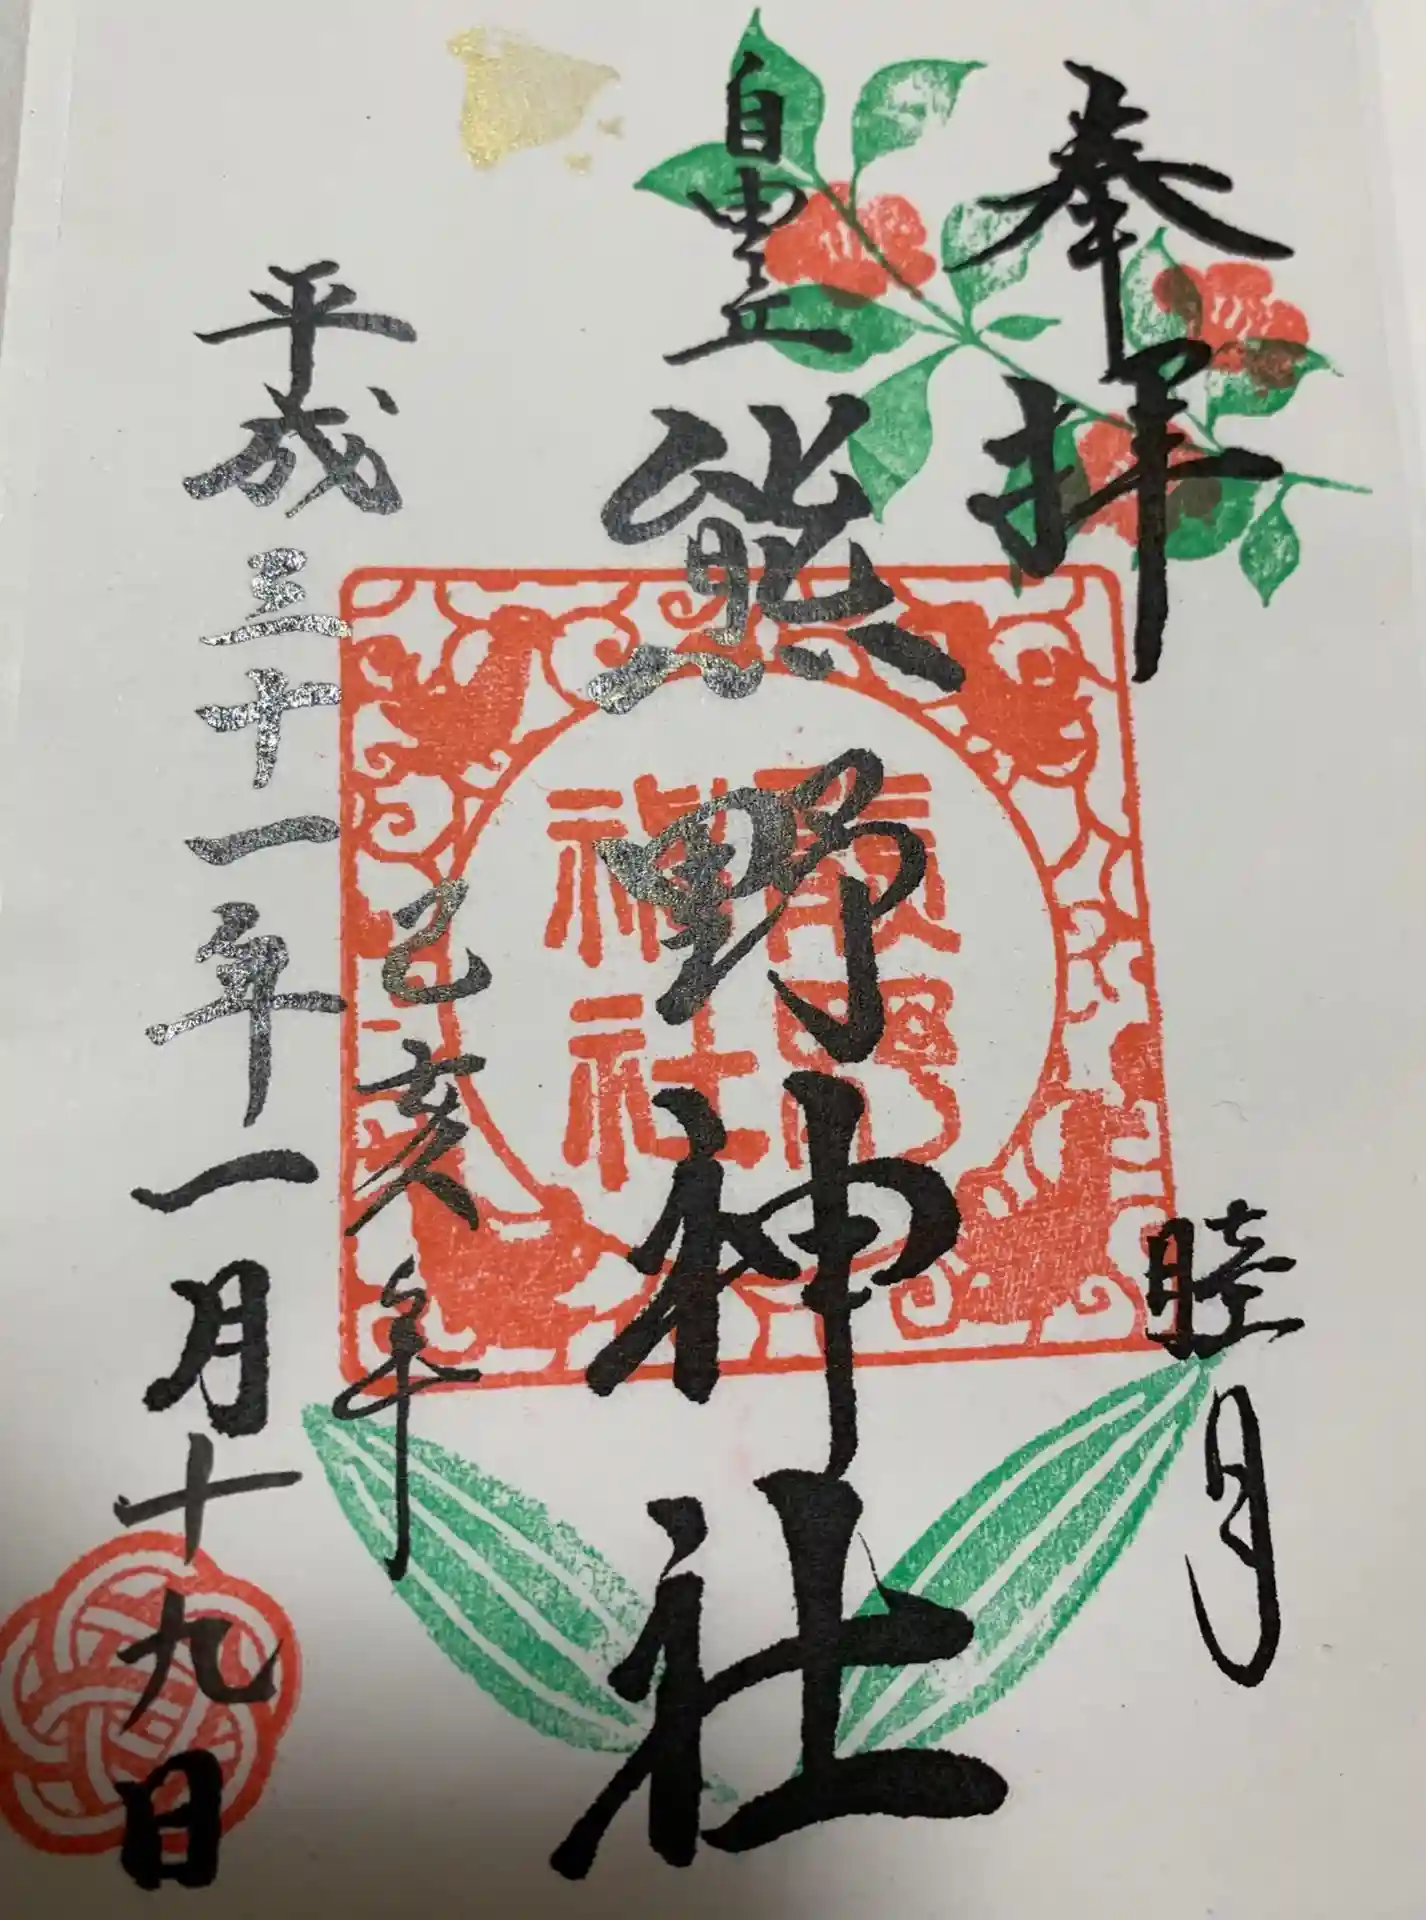 奉拝
睦月
自由丘
熊野神社
熊野
神社
己亥年
平成三十一年一月十九日